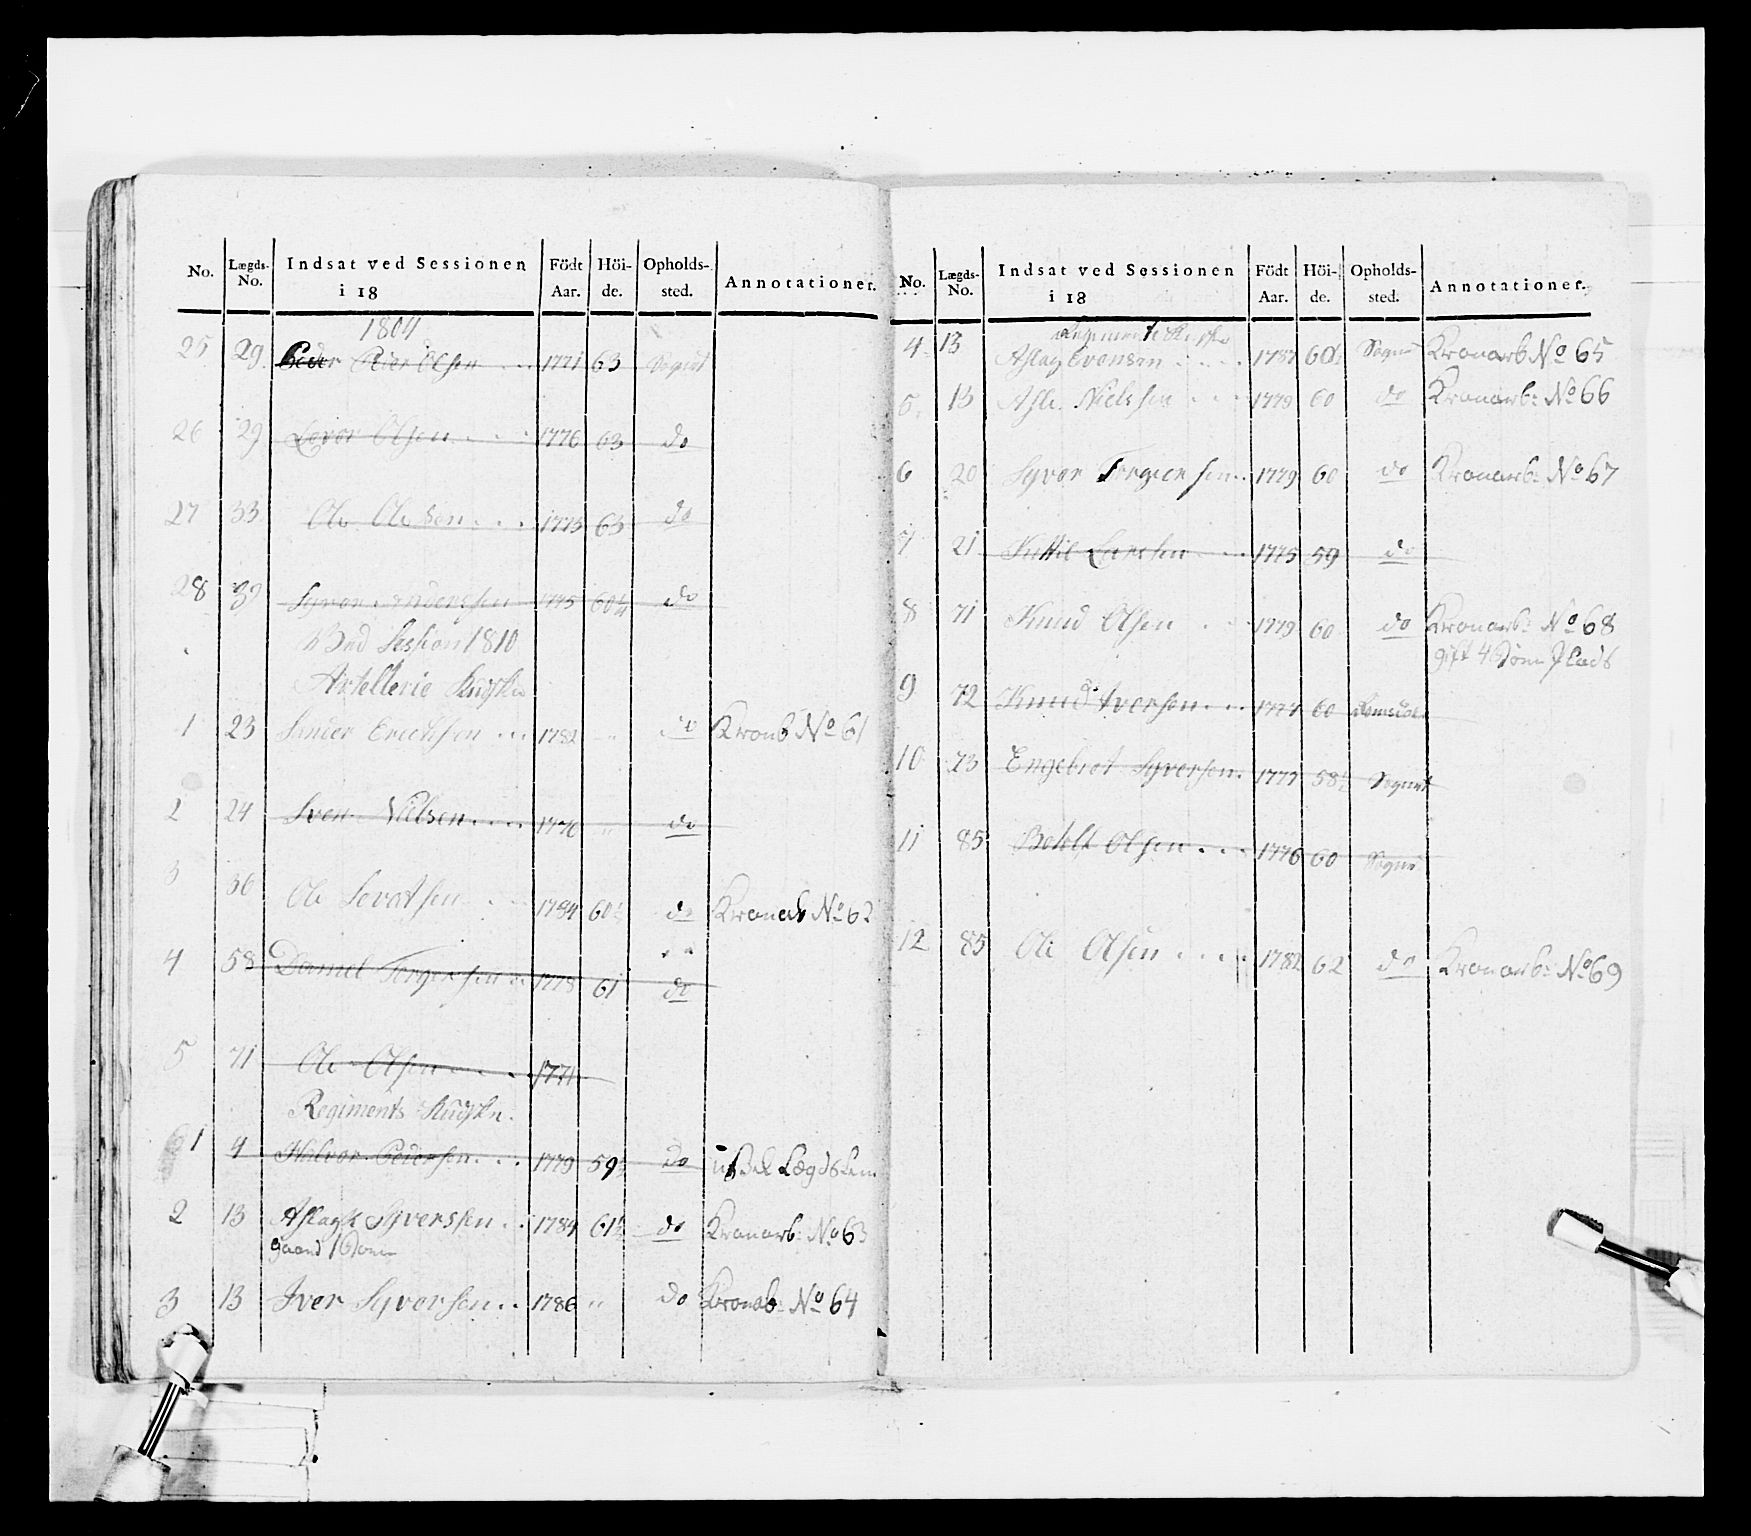 No. Lægds-No. Indsat ved Sessionen i 18 Födt Aar. Höi-de. Opholds-sted. Annotationer.
1804
25 29 Peder Olsen 1771 63 Sognet
26 29 Olsen 1776 63 do
27 33 Ole Olsen 1773 63 do
28 39 Syver Anderssen 1775 60¼ do
Ved Session 1810
Artellerie Kudske
1 23 Sander Erichsen 1782 " do Kronb No 61
2 24 Sven Nielsen 1770 " do
3 36 Ole 1784 60½ do Kronarb No 62
4 58 Daniel Torgersen 1778 61 do
5 71 Ole Olsen 1771
Regiments Kudske.
1 4 Halvor Pedersen 1779 59½ do Lægdslem
2 13 Aslagh Syverssen 1784 61½ do Kronarb: No 63
3 13 Iver Syversen 1786 " do Kronab: No 64
No. Lægds-No. Indsat ved Sessionen i 18 Födt Aar. Höi-de. Opholds-sted. Annotationer.
Regiments Kudske
4 13 Aslag Evensen 1787 60½ Sogne Kronarb No 65
5 13 Asle Nielssen 1779 60 do Kronarb: No 66
6 20 Syver Torgersen 1779 60 do Kronarb: No 67
7 21 Kittil Larssen 1775 59 do
8 71 Knud Olsen 1779 60 do Kronarb: No 68
gift 4
9 72 Knud Iversen 1777 60
10 73 Engebret Syversen 1777 58½ Sognet
11 85 Botolf Olsen 1776 60 Sogne
12 85 Ole Olsen 1782 62 do Kronarb: No 69